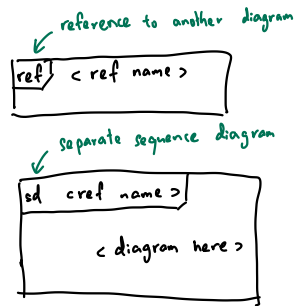 reference to another diagram
ref < ref name >
separate sequence diagram
sd <ref name >
< diagram here >